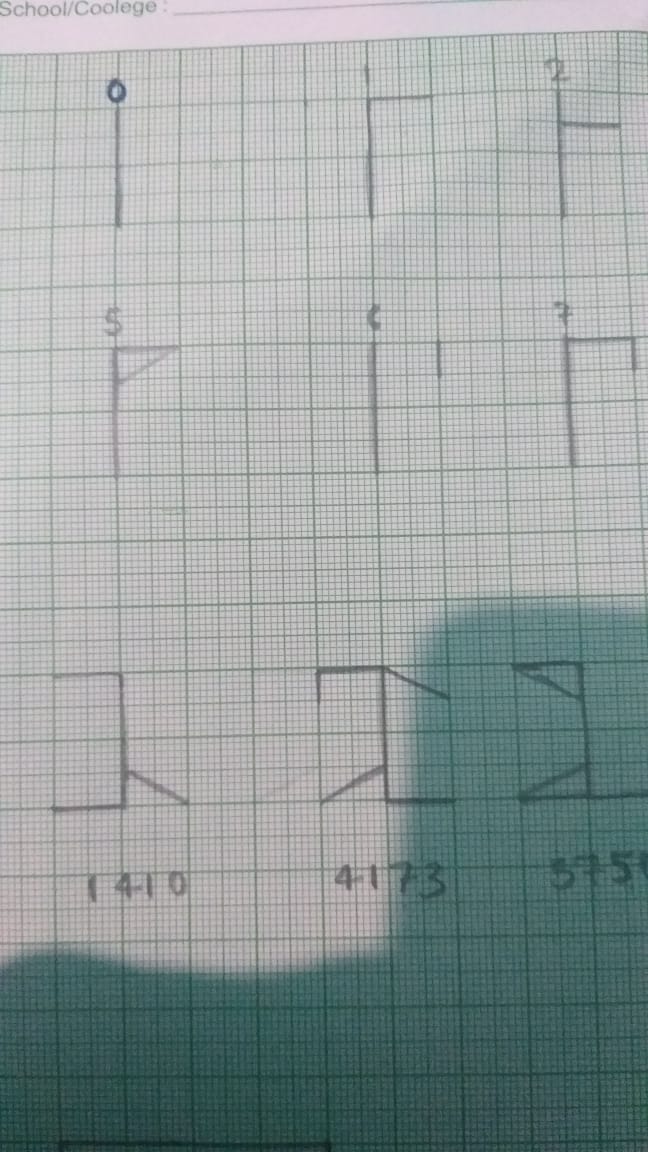 School/Coolege :
0 1 2
5 6 7
1410 4173 575